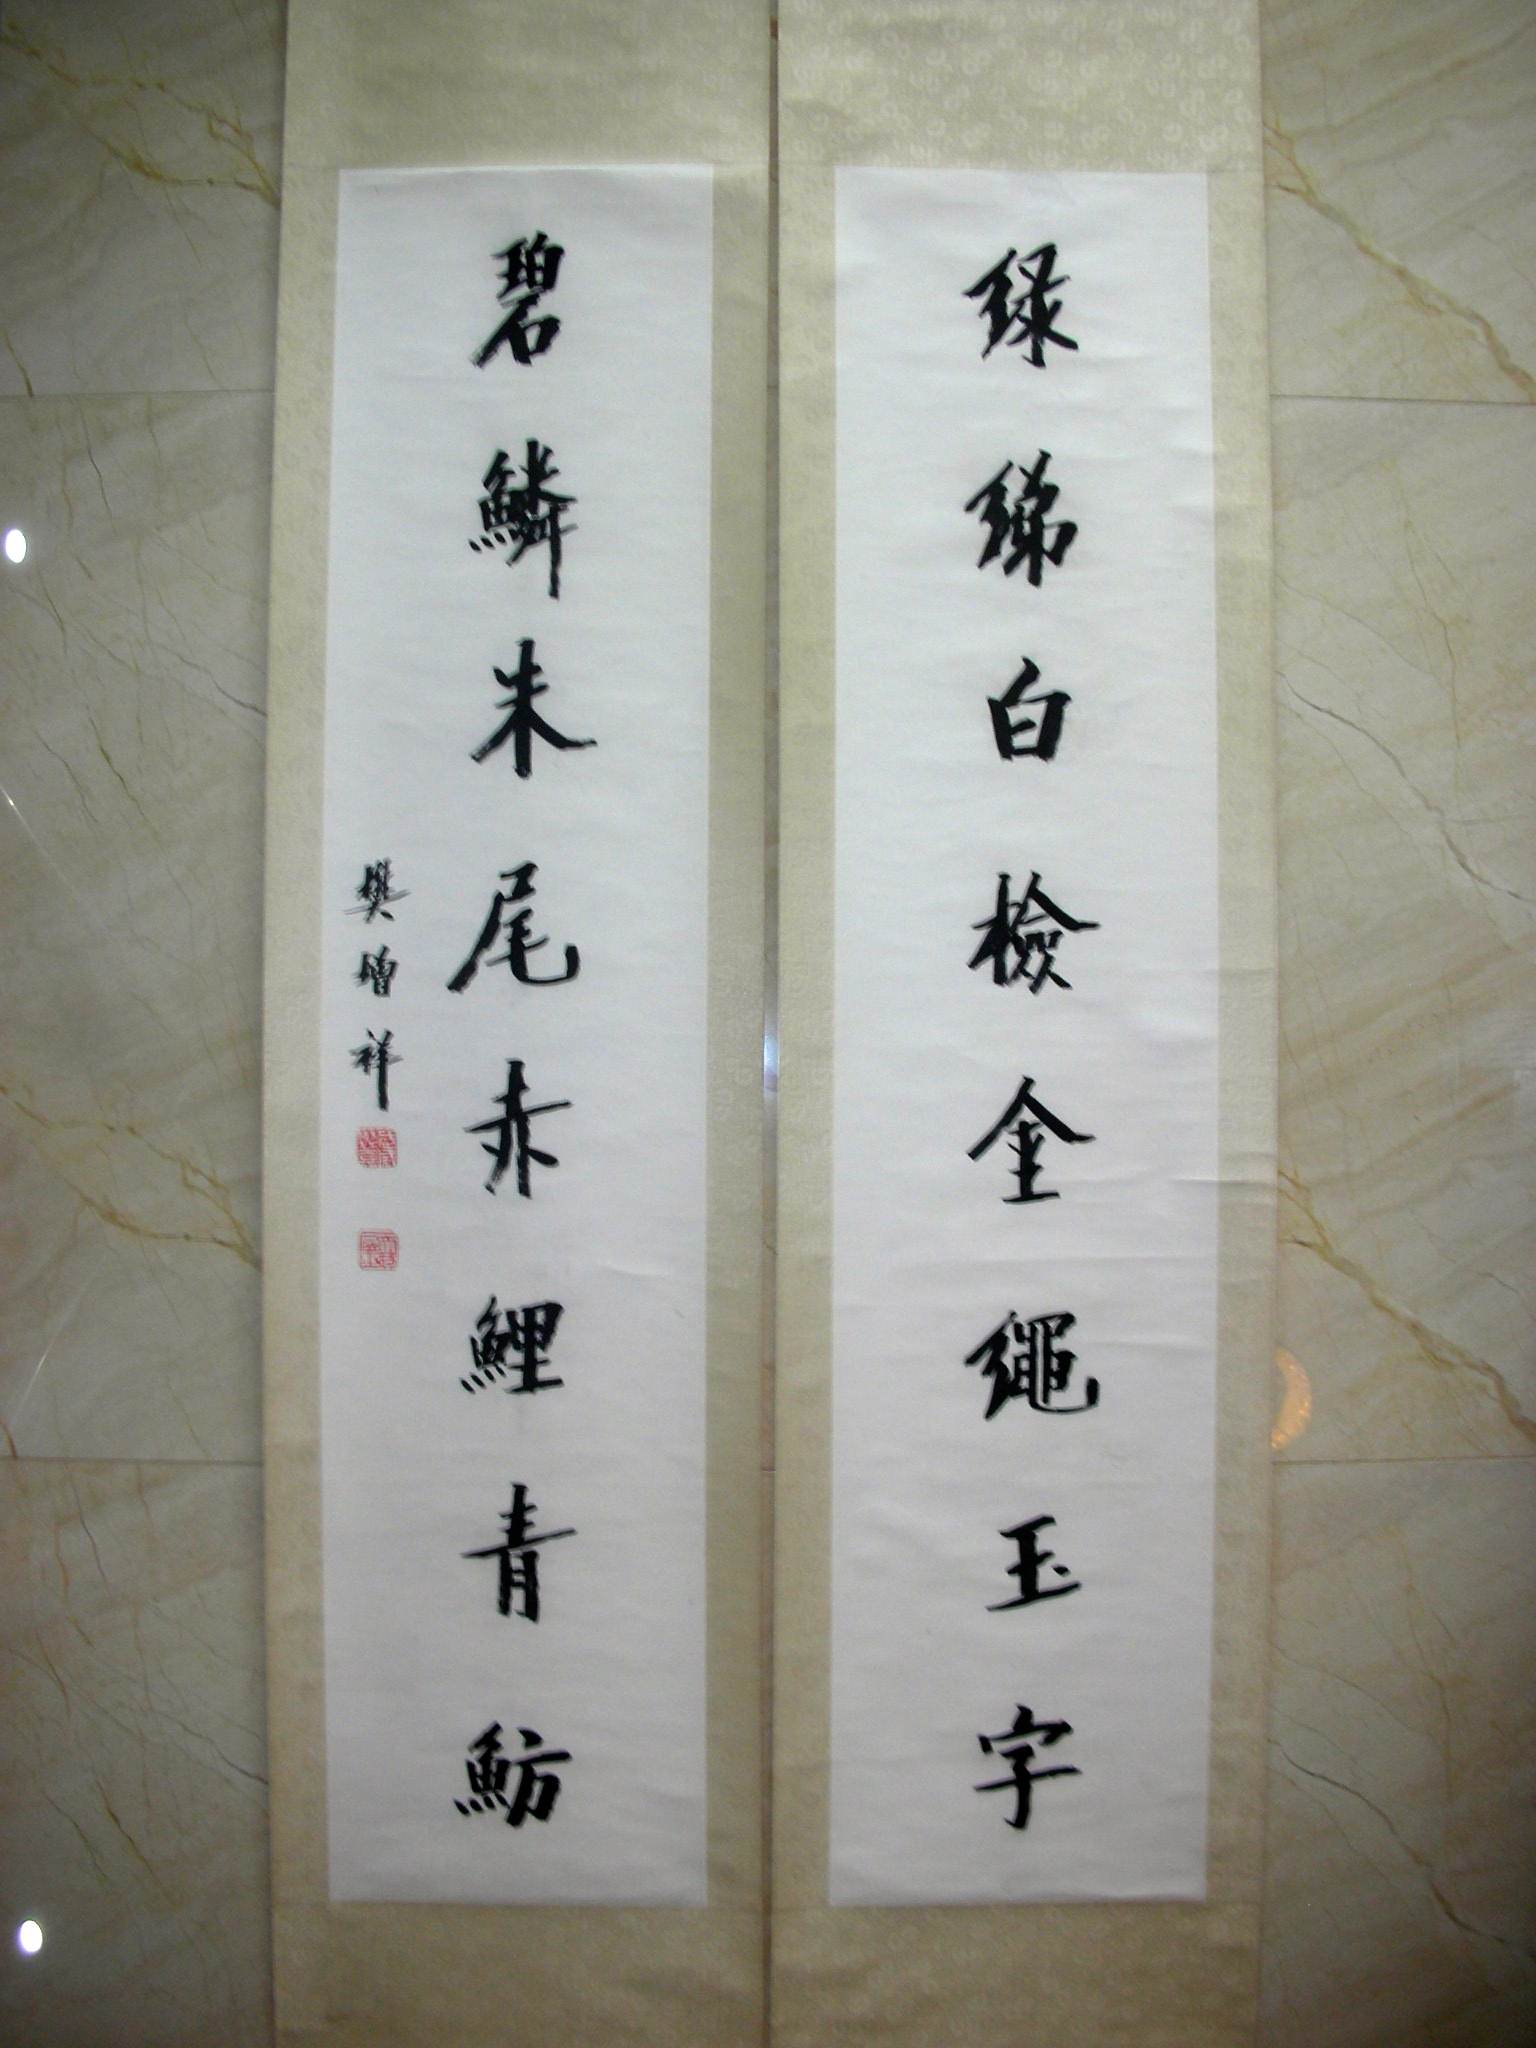 緑綈白檢金繩玉字
碧鱗朱尾赤鯉青魴
樊增祥